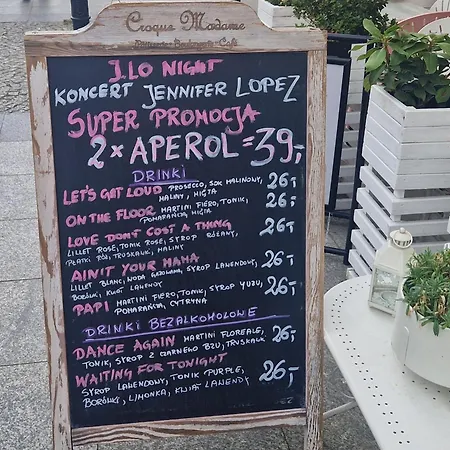 Croque Madame
J.LO NIGHT
KONCERT JENNIFER LOPEZ
SUPER PROMOCJA
2 x APEROL = 39,-
DRINKI
LET'S GET LOUD PROSECCO, SOK MALINOWY, 26,-
MALINY, MIĘTA
ON THE FLOOR MARTINI FIERO, TONIK, 26,-
POMARAŃCZA, MIĘTA
LOVE DON'T COST A THING 26,-
LILLET ROSE, TONIK ROSE, SYROP RÓŻANY,
PŁATKI RÓŻ, TRUSKAWKI, MALINY
AIN'T YOUR MAMA 26,-
LILLET BLANC, WODA GAZOWANA, SYROP LAWENDOWY,
BORÓWKI, KWIAT LAWENDY
PAPI MARTINI FIERO, TONIK, SYROP YUZU, 26,-
POMARAŃCZA, CYTRYNA
DRINKI BEZALKOHOLOWE
DANCE AGAIN MARTINI FLOREALE, 26,-
TONIK, SYROP Z CZARNEGO BZU, TRUSKAWKI
WAITING FOR TONIGHT 26,-
SYROP LAWENDOWY, TONIK PURPLE,
BORÓWKI, LIMONKA, KWIAT LAWENDY